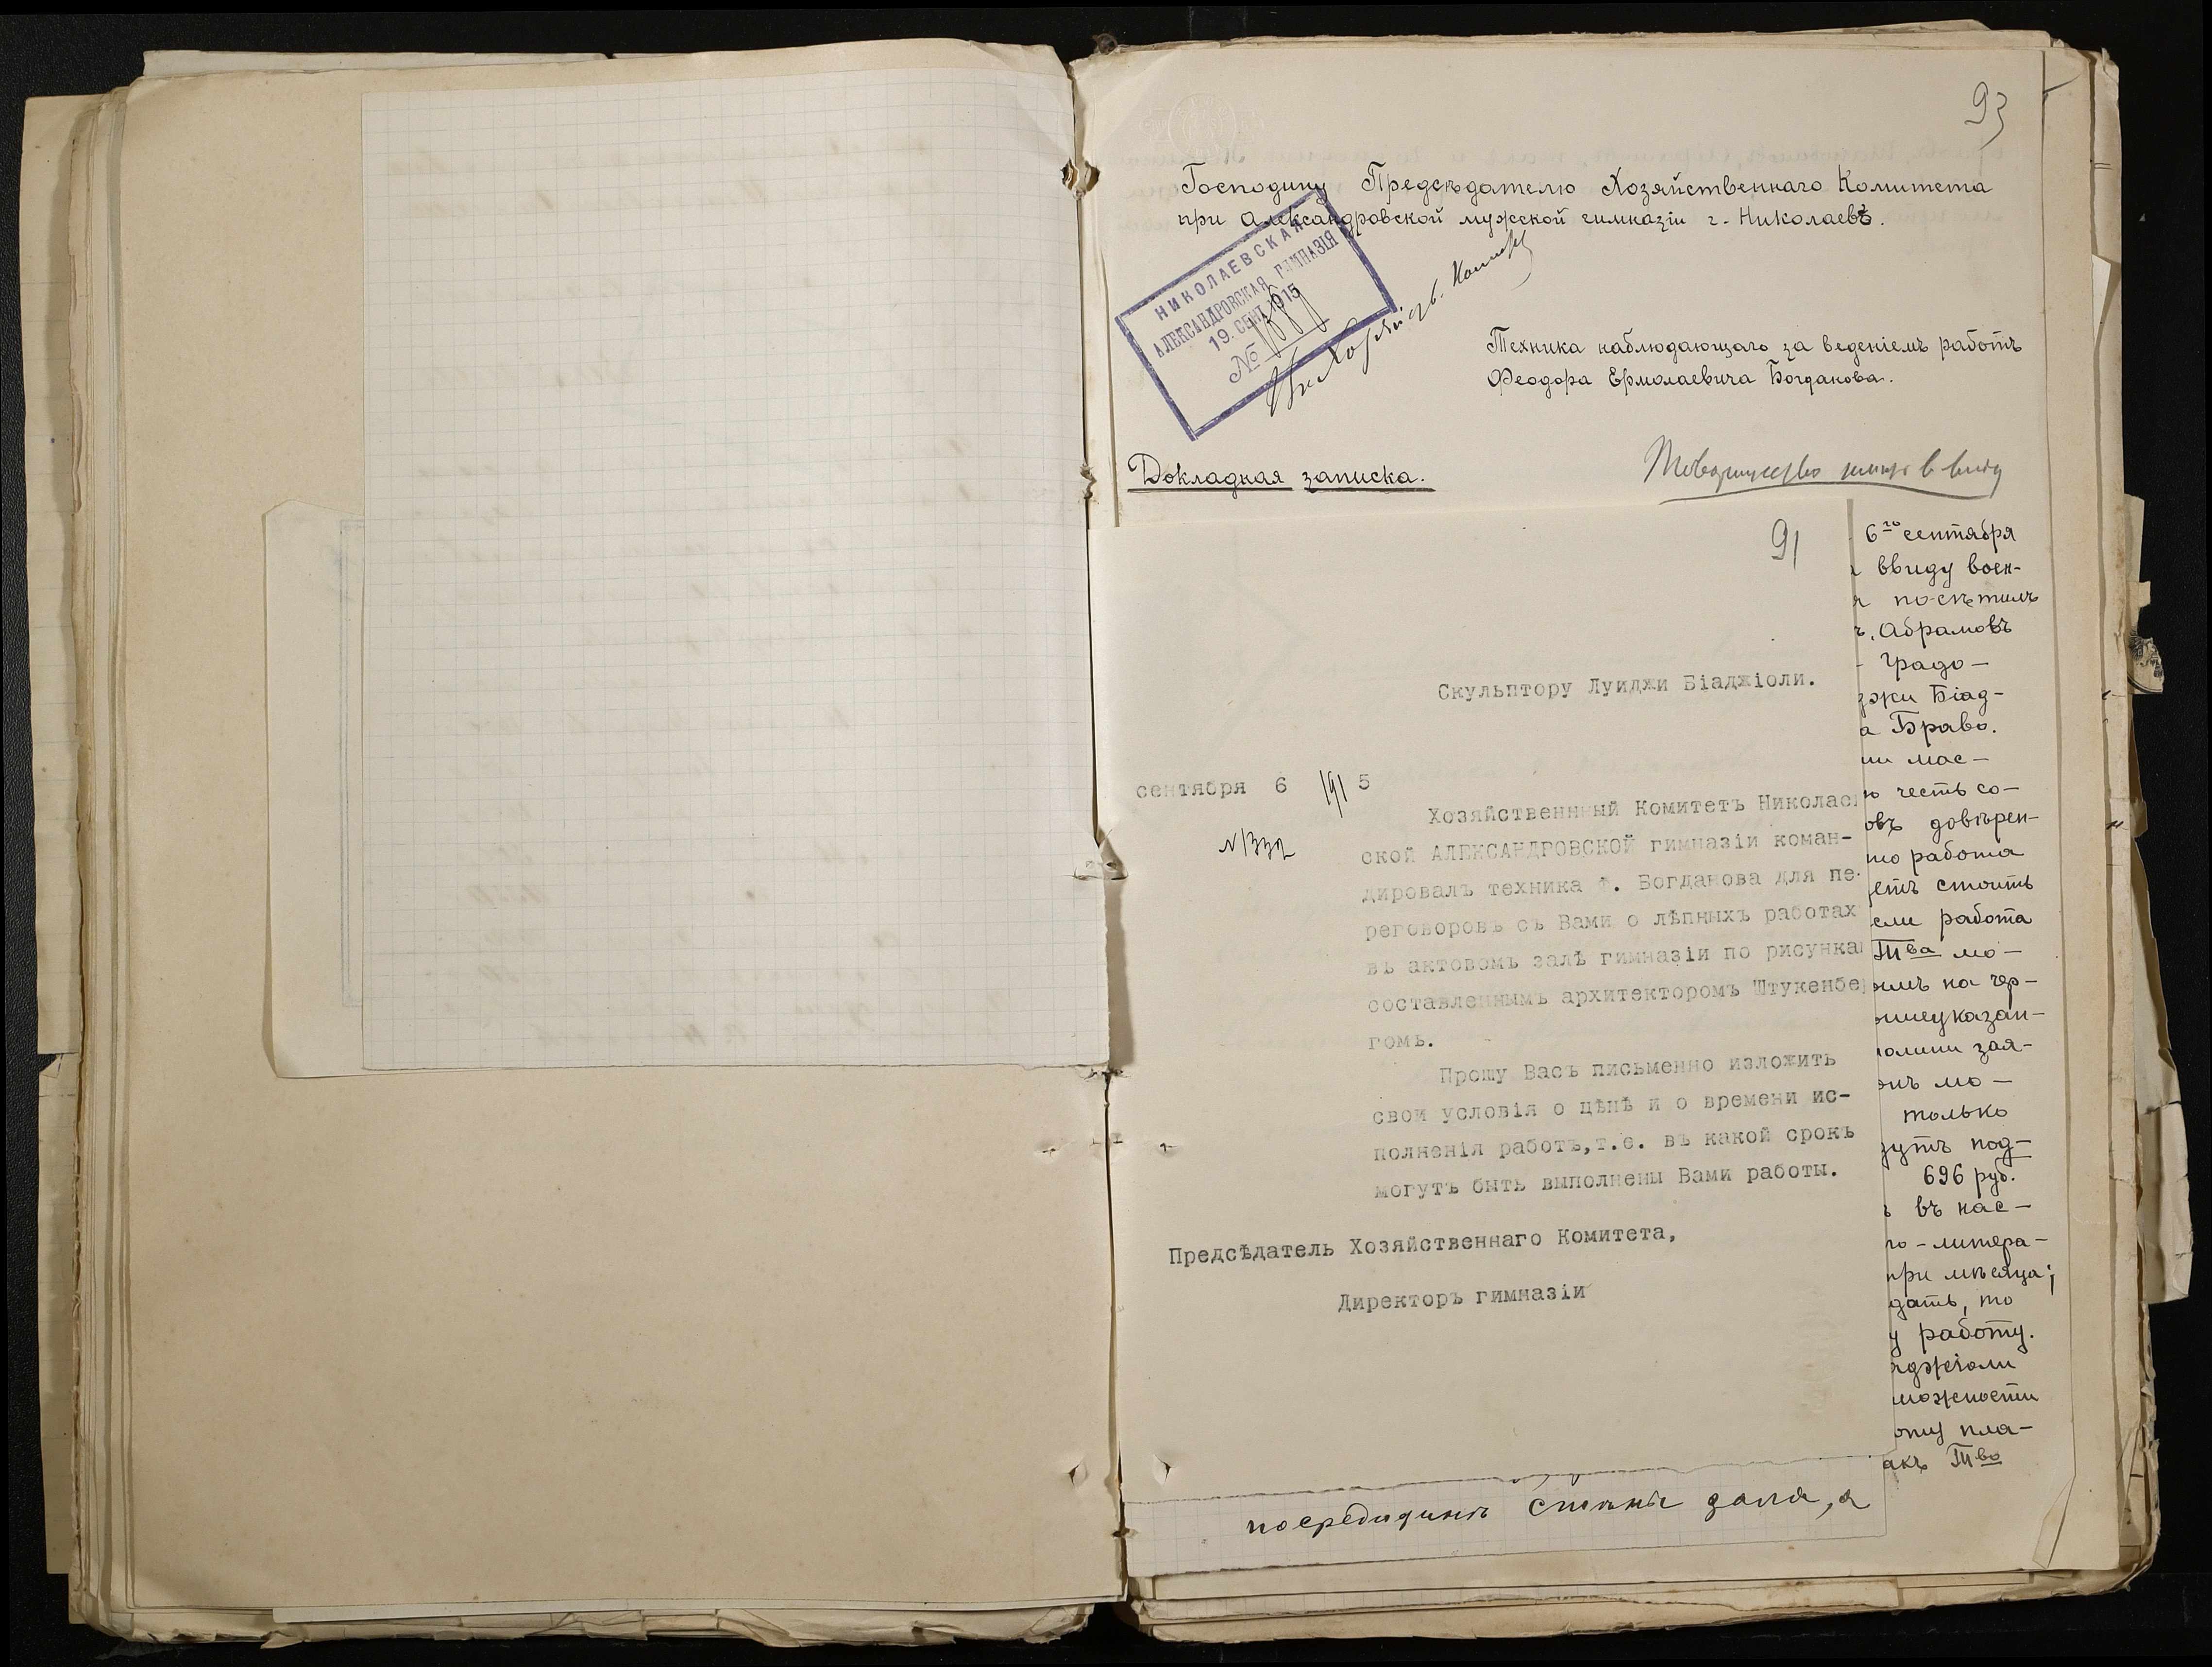 93
Господину Предсѣдателю Хозяйственнаго Комитета
при Александровской мужской гимназіи г. Николаевъ.
НИКОЛАЕВСКАЯ
АЛЕКСАНДРОВСКАЯ ГИМНАЗІЯ
19. СЕНТ. 1915
№
Техника наблюдающаго за веденіемъ работъ
Феодора Ермолаевича Богданова.
Докладная записка.
91
Скульптору Луиджи Біаджіоли.
сентября 6 1915
№1332
Хозяйственнный Комитетъ Николаев
ской АЛЕКСАНДРОВСКОЙ гимназіи коман-
дировалъ техника Ф. Богданова для пе-
реговоровъ съ Вами о лѣпныхъ работах
въ актовомъ залѣ гимназіи по рисунка
составленнымъ архитекторомъ Штукенбе
гомъ.
Прошу Васъ письменно изложить
свои условія о цѣнѣ и о времени ис-
полненія работъ,т.е. въ какой срокъ
могутъ быть выполнены Вами работы.
Предсѣдатель Хозяйственнаго Комитета,
Директоръ гимназіи
6го сентября
ввиду воен-
посѣтилъ
Абрамовъ
Градо-
джи Біад-
а Браво.
ми мас-
ю честь со-
овъ довѣрен-
то работа
детъ стоить
если работа
Тва мо-
на чер-
вышеуказан-
зая-
мо-
только
дутъ под-
696 руб.
въ нас-
го-литера-
три мѣсяца;
дать, то
у работу.
аджіоли
можности
ому пла-
акъ Тво
посредидинѣ стѣны зала, а